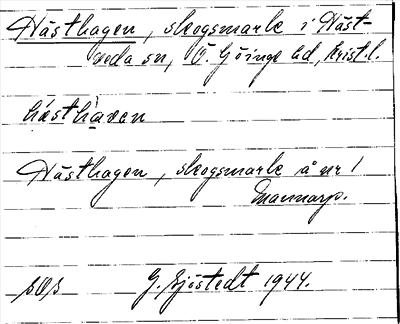 Hästhagen, skogsmark i Häst-
veda sn, Ö. Göinge hd, Krist. l.
hästha̤ɡen
Hästhagen, skogsmark å nr 1
Mannarp.
SOS G. Sjöstedt 1944.